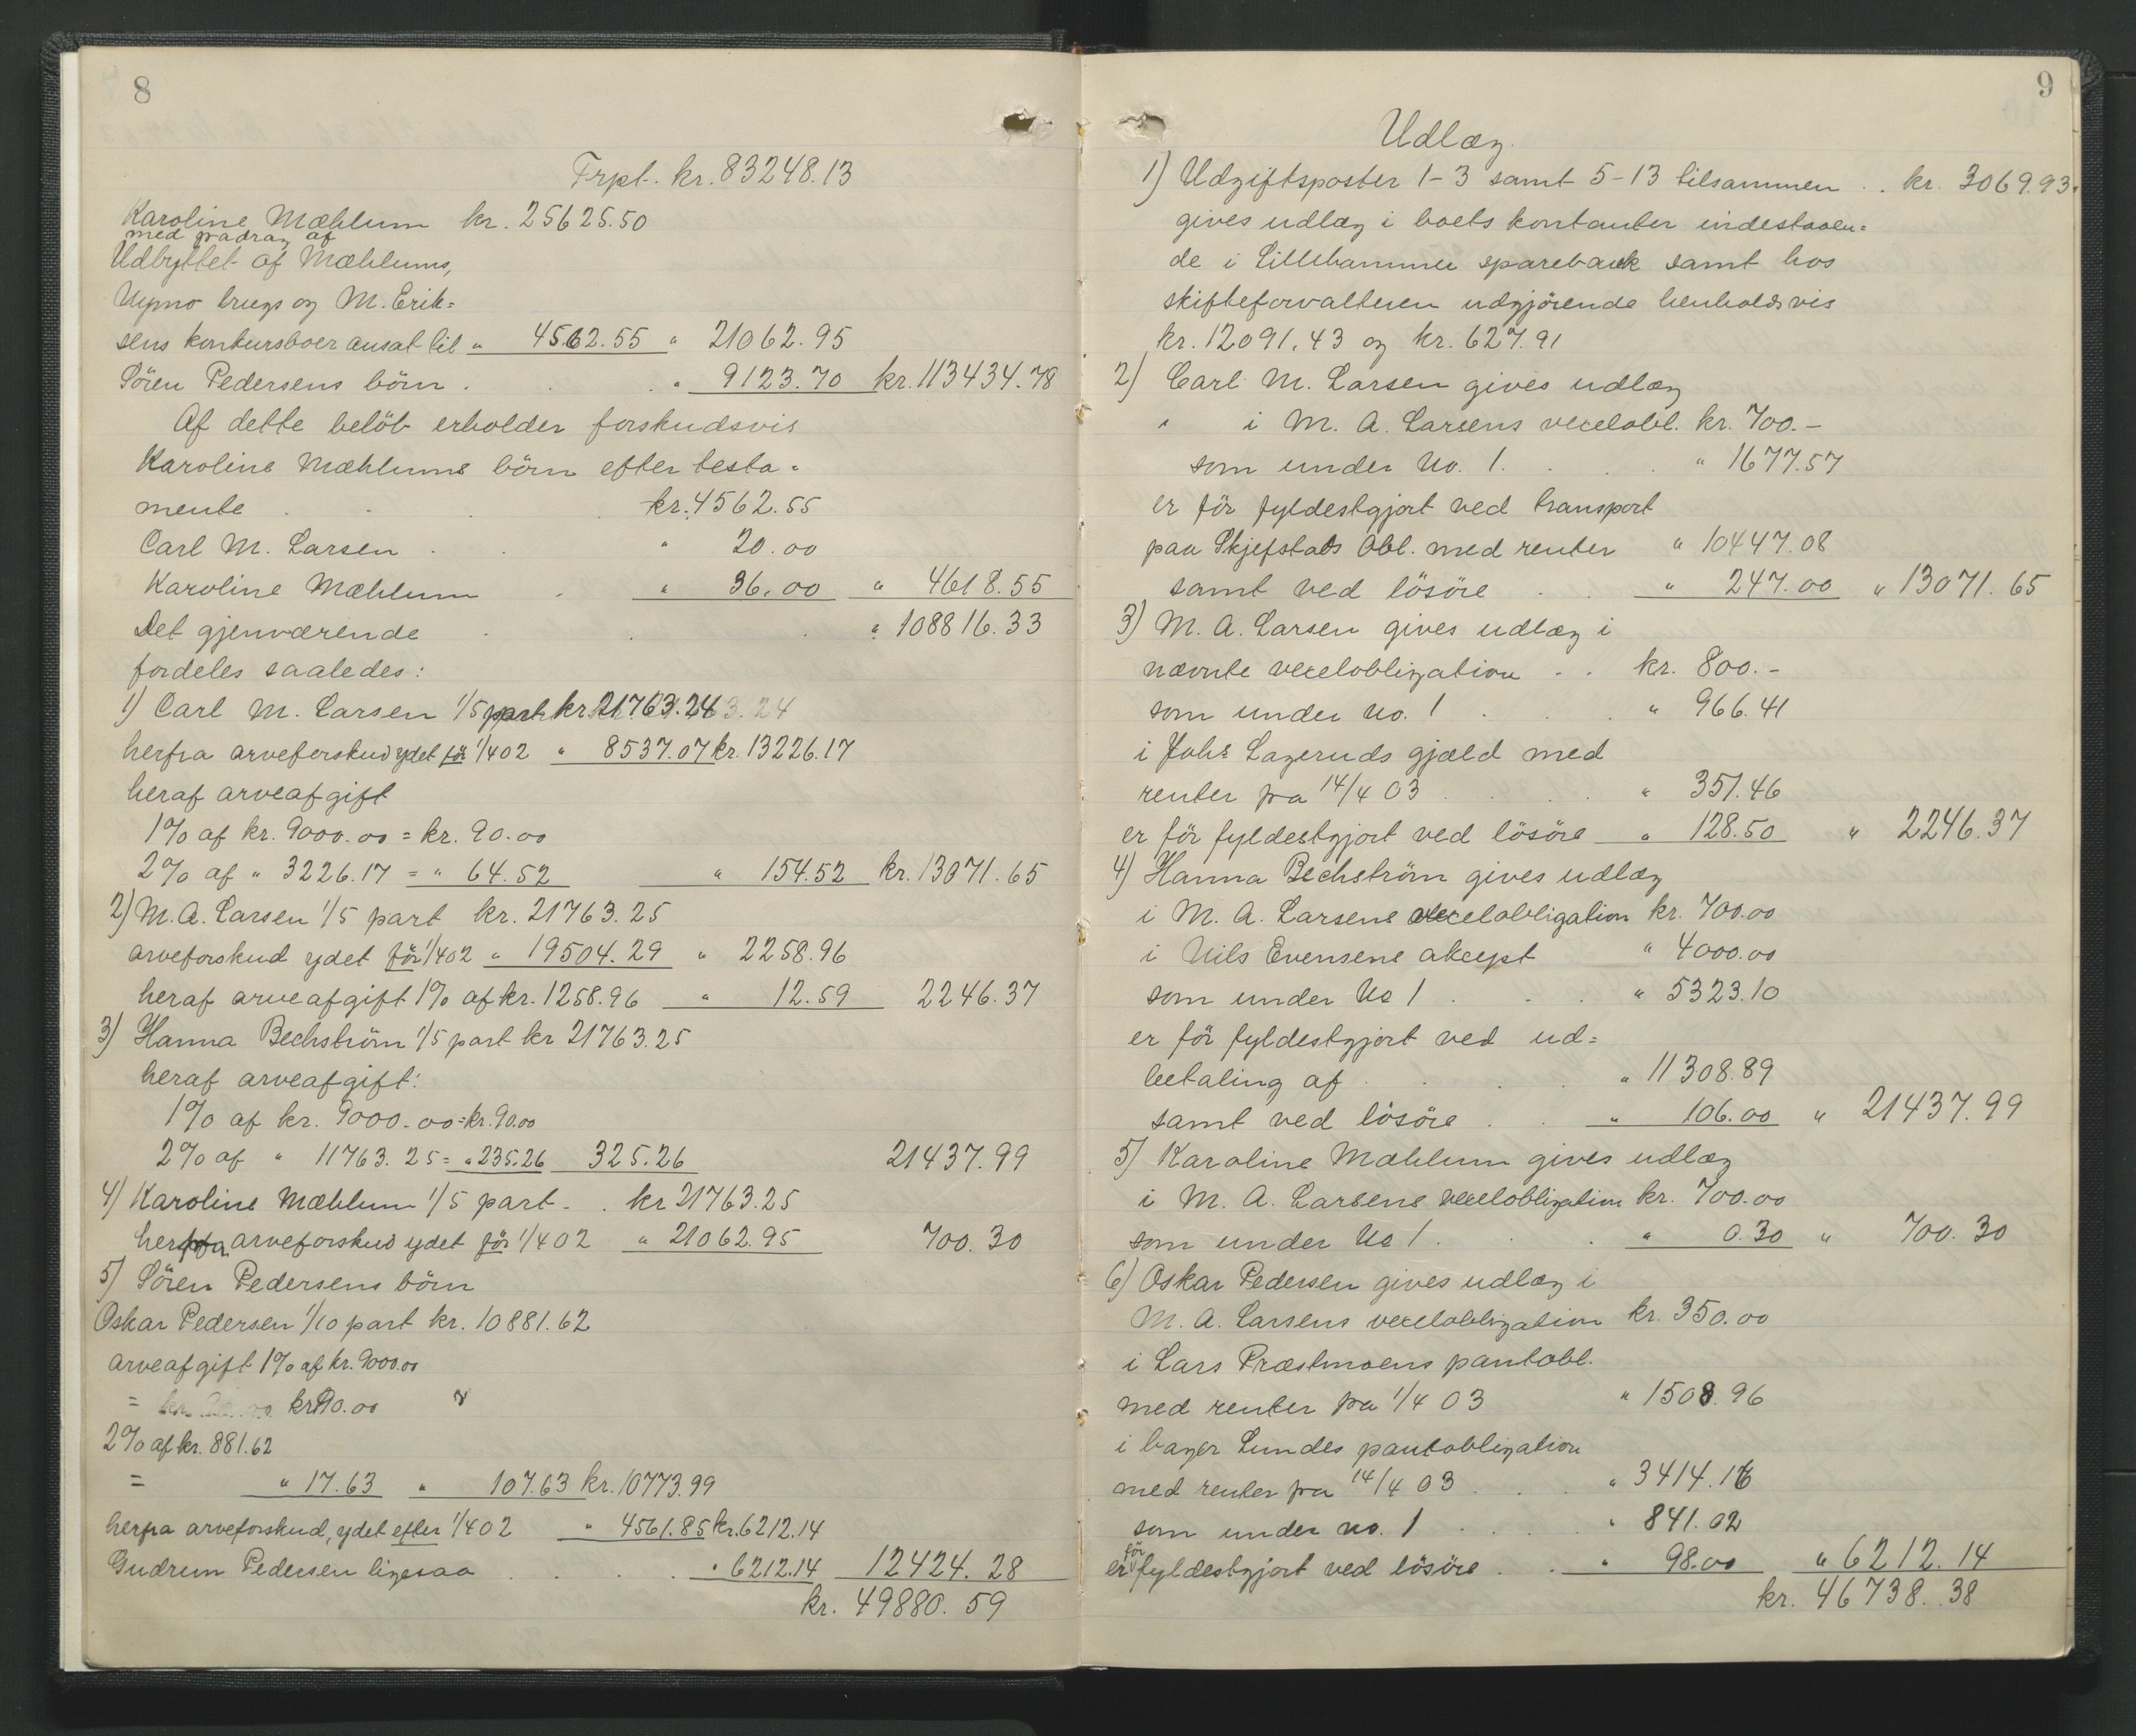 8
Frpt. kr. 83248.13
Karoline Mæhlum kr. 25625.50
med fradrag af
Udbyttet af Mæhlums,
Nymo brugs og M. Erik=
sens konkursboer ansat til " 4562.55 " 21062.95
Sören Pedersens börn . . . " 9123.70 kr. 113434.78
Af dette belöb erholder forskudsvis
Karoline Mæhlums börn efter testa=
mente . . . kr. 4562.55
Carl M. Larsen . . " 20.00
Karoline Mæhlum . " 36.00 " 4618.55
Det gjenværende . . . " 108816.33
fordeles saaledes:
1) Carl M. Larsen 1/5 part kr. 21763.24
herfra arveforskud ydet för 1/4 02 " 8537.07 kr. 13226.17
heraf arveafgift
1% af kr. 9000.00 = kr. 90.00
2% af " 3226.17 = " 64.52 " 154.52 kr. 13071.65
2) M. A. Larsen 1/5 part kr. 21763.25
arveforskud ydet för 1/4 02 " 19504.29 " 2258.96
heraf arveafgift 1% af kr. 1258.96 " 12.59 2246.37
3) Hanna Bechström 1/5 part kr 21763.25
heraf arveafgift:
1% af kr. 9000.00 = kr. 90.00
2% af " 11763.25 = " 235.26 325.26 21437.99
4) Karoline Mæhlum 1/5 part . . kr 21763.25
herfra arveforskud ydet för 1/4 02 " 21062.95 700.30
5) Sören Pedersens börn
Oskar Pedersen 1/10 part kr. 10881.62
arveafgift 1% af kr. 9000.00
= kr. 90.00
2% af kr. 881.62
= " 17.63 " 107.63 kr. 10773.99
herfra arveforskud, ydet efter 1/4 02 " 4561.85 kr. 6212.14
Gudrun Pedersen ligesaa . . . . " 6212.14 12424.28
kr. 49880.59
9
Udlæg.
1) Udgiftsposter 1-3 samt 5-13 tilsammen . . kr. 3069.93.
gives udlæg i boets kontanter indestaaen=
de i Lillehammer sparebank samt hos
skifteforvalteren udgjörende henholdsvis
kr. 12091.43 og kr. 627.91
2) Carl M. Larsen gives udlæg
i M. A. Larsens vexelobl. kr. 700.-
som under No. 1. . . . " 1677.57
er för fyldestgjort ved transport
paa Skjefstads Obl. med renter " 10447.08
samt ved lösöre . . " 247.00 " 13071.65
3) M. A. Larsen gives udlæg i
nævnte vexelobligation . . kr. 800.-
som under No. 1 . . . " 966.41
i Johs Lageruds gjæld med
renter fra 14/4 03 . . . . " 351.46
er för fyldestgjort ved lösöre " 128.50 " 2246.37
4) Hanna Bechström gives udlæg
i M. A. Larsens vexelobligation kr. 700.00
i Nils Evensens akcept " 4000.00
som under No 1 . . . " 5323.10
er för fyldestgjort ved ud=
betaling af . . . . " 11308.89
samt ved lösöre . . " 106.00 " 21437.99
5) Karoline Mæhlum gives udlæg
i M. A. Larsens vexelobligation kr. 700.00
som under No 1 . . . " 0.30 " 700.30
6) Oskar Pedersen gives udlæg i
M. A. Larsens vexelobligation kr. 350.00
i Lars Præstmoens pantobl.
med renter fra 1/4 03 " 1508.96
i bager Lundes pantobligation
med renter fra 14/4 03 . . . " 3414.16
som under no. 1 . . . . " 841.02
er för fyldestgjort ved lösöre . . " 98.00 " 6212.14
kr. 46738.38